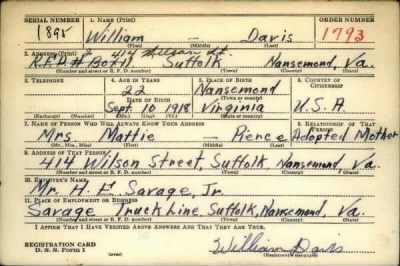 SERIAL NUMBER 1. NAME (Print) ORDER NUMBER
1895 William — Davis 1793
(First) (Middle) (Last)
2. ADDRESS (Print) 414 Wilson St.
R.F.D. # Box 11 Suffolk Nansemond, Va.
(Number and street or R. F. D. number) (Town) (County) (State)
3. TELEPHONE 4. AGE IN YEARS 5. PLACE OF BIRTH 6. COUNTRY OF CITIZENSHIP
22 Nansemond
DATE OF BIRTH (Town or county)
Sept. 10, 1918 Virginia U.S.A
(Exchange) (Number) (Mo.) (Day) (Yr.) (State or country)
7. NAME OF PERSON WHO WILL ALWAYS KNOW YOUR ADDRESS 8. RELATIONSHIP OF THAT PERSON
Mrs. Mattie — Pierce Adopted Mother
(Mr., Mrs., Miss) (First) (Middle) (Last)
9. ADDRESS OF THAT PERSON
414 Wilson Street, Suffolk, Nansemond Va.
(Number and street or R. F. D. number) (Town) (County) (State)
10. EMPLOYER'S NAME
Mr. H. E. Savage, Jr.
11. PLACE OF EMPLOYMENT OR BUSINESS
Savage Truck Line, Suffolk, Nansemond, Va.
(Number and street or R. F. D. number) (Town) (County) (State)
I AFFIRM THAT I HAVE VERIFIED ABOVE ANSWERS AND THAT THEY ARE TRUE.
REGISTRATION CARD
D. S. S. Form 1 William Davis
(Registrant's signature)